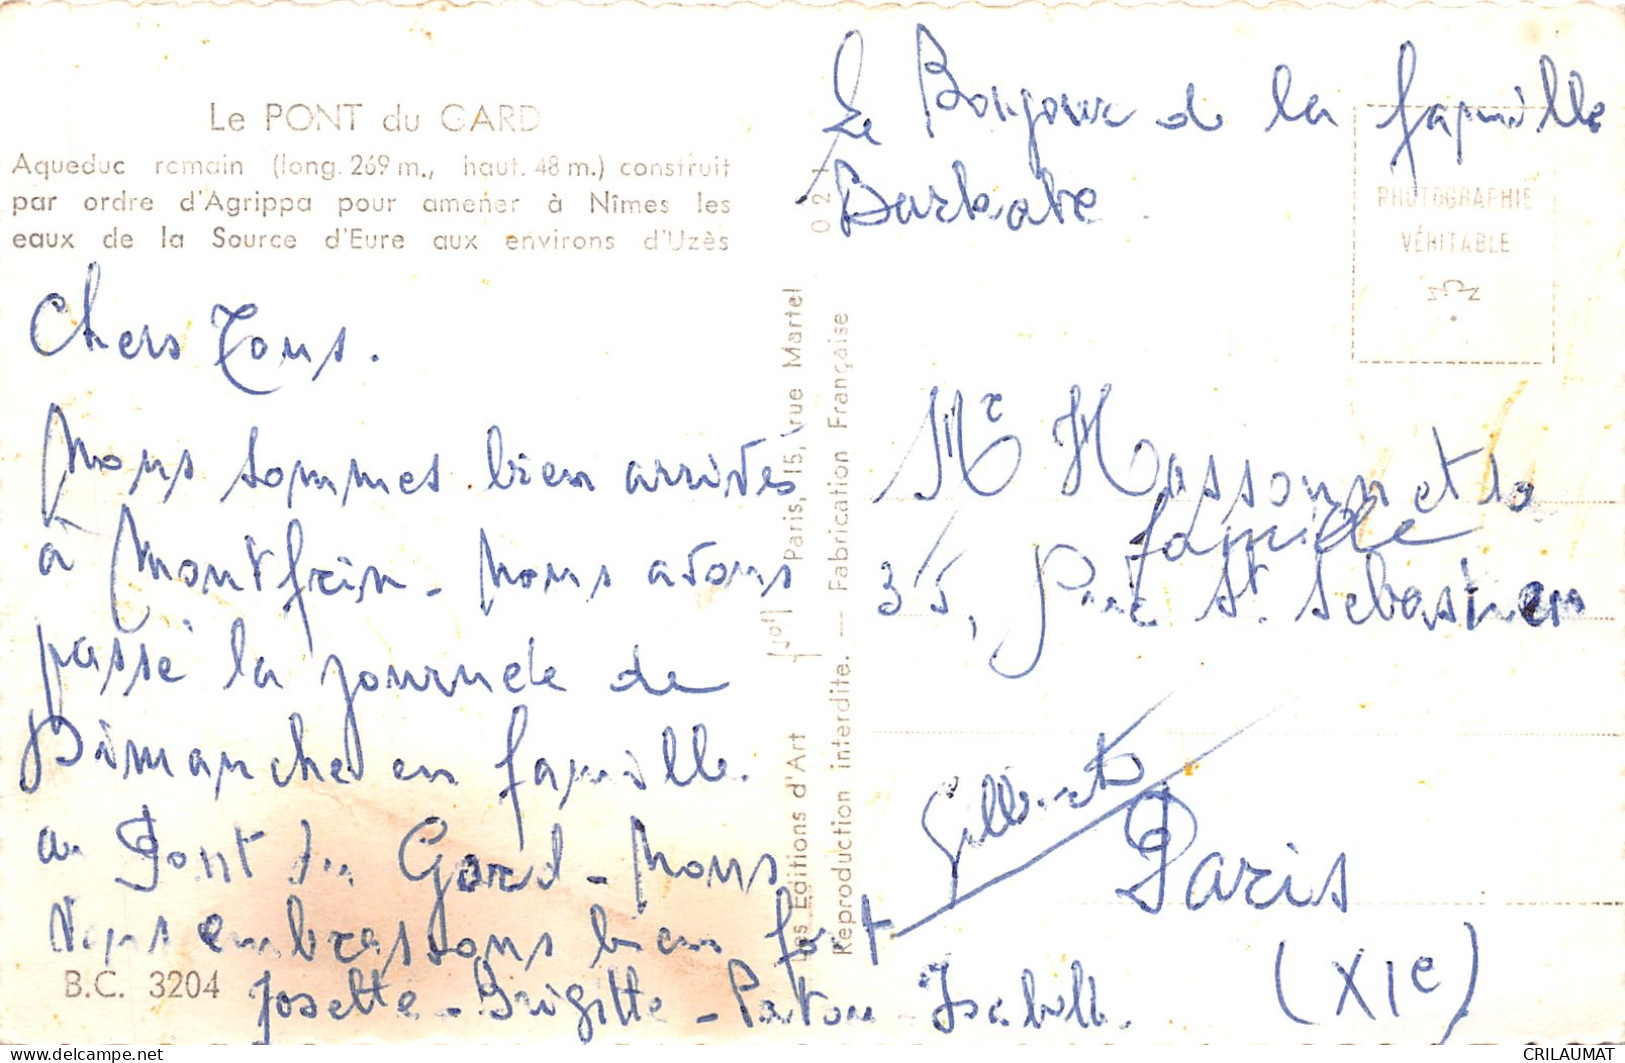 Le PONT du GARD
Aqueduc romain (long. 269 m., haut. 48 m.) construit
par ordre d'Agrippa pour amener à Nîmes les
eaux de la Source d'Eure aux environs d'Uzès
Chers Tous.
Nous sommes bien arrivés
à Montfrin - Nous avons
passé la journée de
Dimanche en famille.
au Pont du Gard - Nous
Vous embrassons bien fort
Josette - Brigitte - Isabelle.
Gilberte
B.C. 3204
Les Editions d'Art Paris, 15, rue Martel
Reproduction interdite. — Fabrication Française
Le Bonjour de la famille
PHOTOGRAPHIE
VÉRITABLE
Mr et la
famille
35, Rue St. Sebastien
Paris
(XIe)
CRILAUMAT